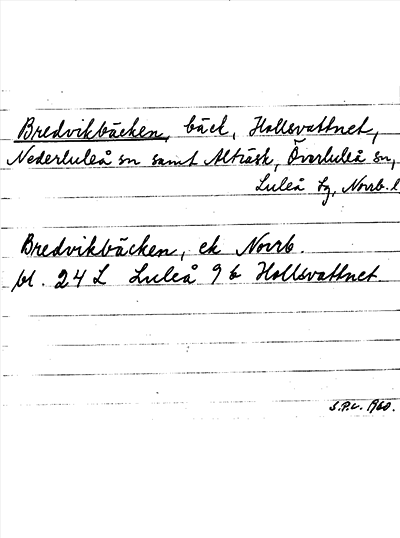 Bredvikbäcken, bäck, Hallsvattnet,
Nederluleå sn samt Alträsk, Överluleå sn,
Luleå tg, Norrb. l
Bredvikbäcken, ek Norrb.
bl. 24 L Luleå 9 b Hallsvattnet.
S.P.C. 1960.